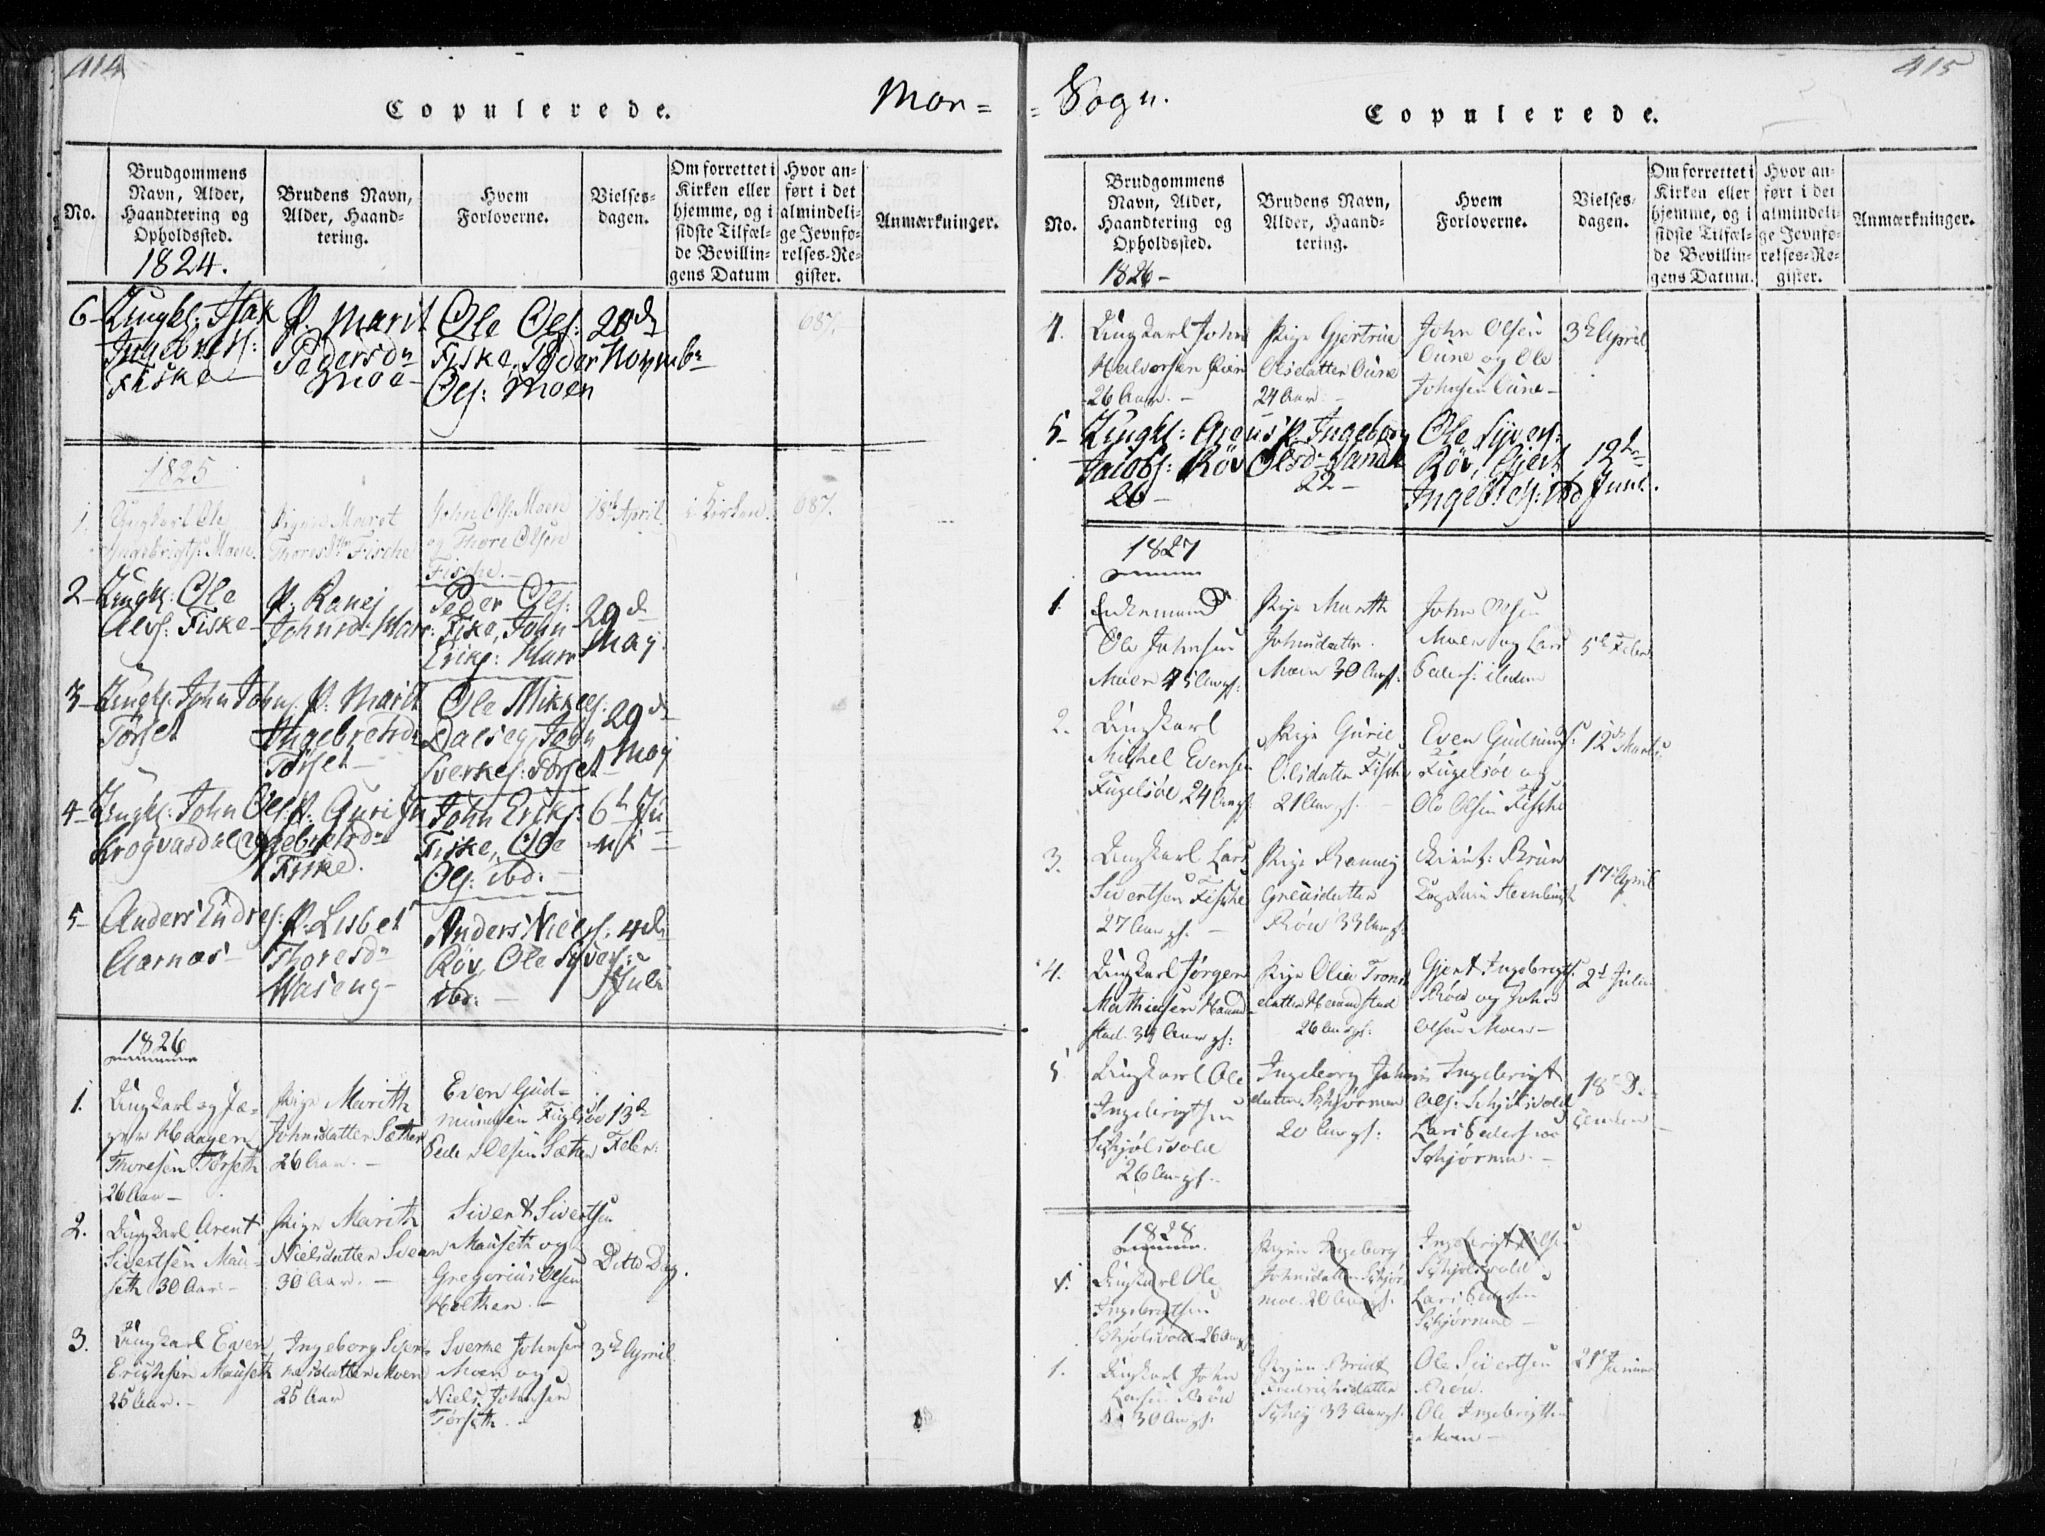 414
Copulerede.
Mor=
No.
Brudgommens
Navn, Alder,
Haandtering og
Opholdssted.
Brudens Navn,
Alder, Haand-
tering.
Hvem
Forloverne.
Vielses-
dagen.
Om forrettet i
Kirken eller
hjemme, og i
sidste Tilfæl-
de Bevillin-
gens Datum
Hvor an-
ført i det
almindeli-
ge Jevnfø-
relses-Re-
gister.
Anmærkninger.
1824.
6
Ungkl: Isak
Ingebrets:
Fiske
P. Marit
Pedersdr
Moe
Ole Ols:
Fiske, Peder
Ols: Moen
20d
Novembr
687.
1825
1.
Ungkarl Ole
Ingebrigts: Moen
Pigen Maret
Thoresdtr Fiske
John Ols: Moen
og Thore Olsen
Fiske.
18de April
i Kirken.
687.
2
Ungk: Ole
Ols: Fiske
P. Ranej
Johnsd: Marc:
Peder Ols:
Fiske, John
Eriks: Marc
29d
Maj
3
Ungk: John Johns.
Torset
P. Marit
Ingebretsd
Torset
Ole Mikkels.
Dalseg, John
Sverkes: Torset
29d
Maj
4
Ungkl: John Ols
Krogvasdal
P. Guri In
gebretsdr
Fiske.
John Eriks:
Fiske, Ole
Ols: ibd.
6h Ju
ni
5
Anders Endres:
Aarnes
P. Lisbet
Thoresdr
Waseng
Anders Niels:
Röv, Ole Syvers:
ibd:
4de
Juli
1826
1.
Ungkarl og Jæ-
ger Haagen
Thoresen Torseth
26 Aar
Pige Marith
Johnsdatter Sæther
26 Aar.
Even Gud-
mundsen Fuglsöe
Peder Olsen Sæther
13de
Febr:
2.
Ungkarl Arent
Sivertsen Mau-
seth 30 Aar
Pige Marith
Nielsdatter Sveen
30 Aar.
Sivert Sivertsen
Mauseth og
Gregorius Olsen
Holthen.
Ditto Dag.
3.
Ungkarl Even
Erichsen Mauseth
25 Aar.
Ingeborg Siver-
nesdatter Moen
25 Aar
Sverke Johnsen
Moen og
Niels Johnsen
Torseth.
3de April
415
Sogn.
Copulerede.
No.
Brudgommens
Navn, Alder,
Haandtering og
Opholdssted.
Brudens Navn,
Alder, Haand-
tering.
Hvem
Forloverne.
Vielses-
dagen.
Om forrettet i
Kirken eller
hjemme, og i
sidste Tilfæl-
de Bevillin-
gens Datum.
Hvor an-
ført i det
almindeli-
ge Jevnfø-
relses-Re-
gister.
Anmærkninger.
1826
4.
Ungkarl John
Halvorsen
26 Aar.
Pige Gjertrue
Olsdatter Oune
24 Aar.
John Olsen
Oune og Ole
Johnsen Oune
3de April.
5
Ungkl: Areus
Jacobs: Röv
26
P. Ingeborg
Olsd: Sande
22
Ole Syvers:
Röv, Gjert
Ingebrets: ibd
12te
Juni.
1827
1.
Enkemand
Ole Johnsen
Moen 45 Aar gl:
Pige Marith
Johnsdatter
Moen 30 Aar gl.
John Olsen
Moen og Lars
Peders: ibidem
5te Febr
2.
Ungkarl
Michel Evensen
Fugelsöe 24 Aar gl
Pige Gurie
Olsdatter Fiske
21 Aar gl.
Even Gudmunds:
Fugelsöe og
Ole Olsen Fiske
12te Marts
3.
Ungkarl Lars
Sivertsen Fiske
27 Aar gl.
Pige Rannej
Greusdatter
Röv 33 Aar gl.
17de April
4.
Ungkarl Jörgen
Mathiesen Haand-
stad 34 Aar gl:
Pige Olia Trons
datter Haandstad
26 Aar gl:
Gjert Ingebrigts:
Röv og John
Olsen Moen
2d Julii
5
Ungkarl Ole
Ingebrigtsen
Schjölsvold
26 Aar gl.
Ingeborg Johns
datter Schjörmoe
20 Aar gl:
Ingebrigt
Ols: Schjölsvold
Lars Pedersen
Schjörmoe.
18de D.
cember
1828
Ungkarl Ole
Ingebrigtsen
Schjölsvold 26 Aar gl
Pigen Ingeborg
Johnsdatter Schjör
moe 20 Aar gl.
Ingebrigt Olsen
Schjölsvold
Lars Pedersen
Schjörmoe
1.
Ungkarl John
Larsen Röv
30 Aar gl.
Pigen Brit
Fredrichsdatter
33 Aar gl.
Ole Sivertsen
Röv.
Ole Ingebrigtsen
Moen